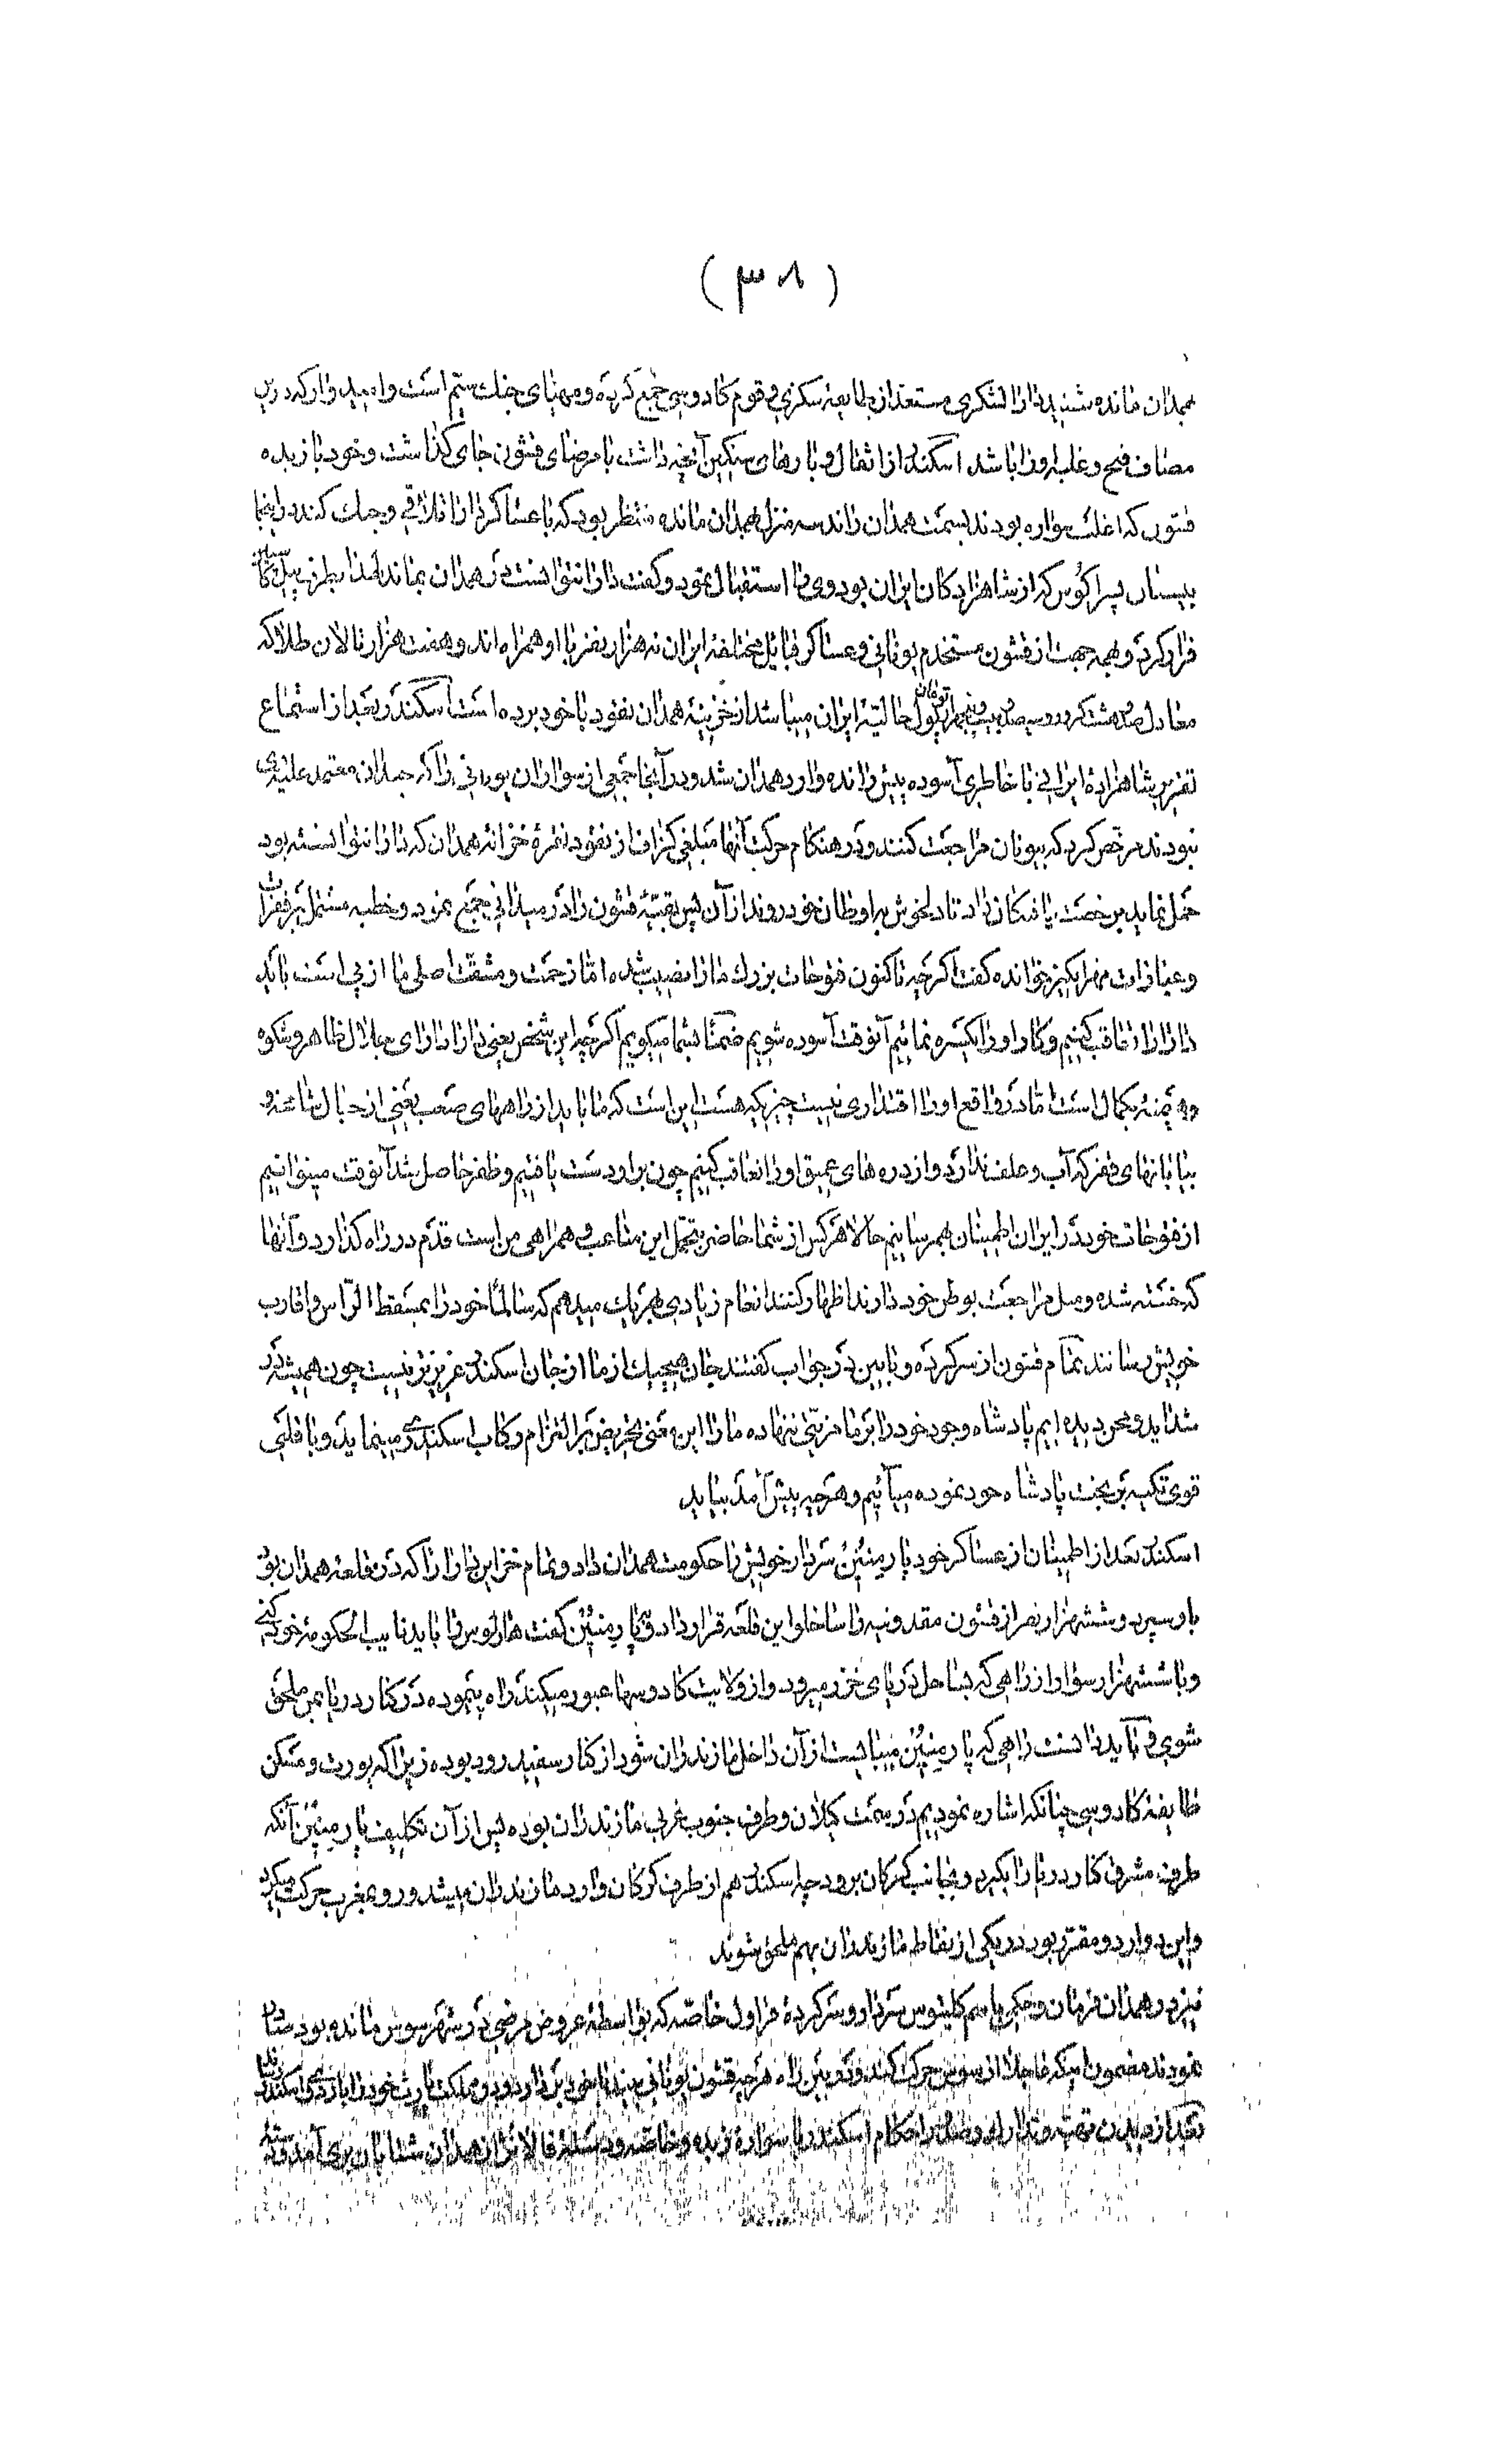 (۳۰۸)
همدان مانده شنید دارا لشکری مستعد از طایفه سکزی و قوم کادوسی جمع کرده و مهیای جنک ستیم است و امیدوار که درین
مصاف فتح و غلبه او را باشد اسکندر از اثقال و بارهای سنکین آنچه داشت با مرضای قشون جای کذاشت و خود با زبده
قشون که اغلب سواره بودند بسمت همدان راند سه منزل بهمدان مانده منتظر بود که با عساکر دارا تلاقی و جنک کند در اینجا
بیستان پسر اکوس که از شاهزادکان ایران بود وی را استقبال نمود و کفت دارا نتوانست در همدان بماند لهذا بطرف
فرار کرد و بهمه جهت از قشون مستخدم یونانی و عساکر قبایل مختلفه ایران نه هزار نفر با او همراه اند و هفت هزار تالان طلا که
معادل هشت کرور و سیصد و بیست و پنجهزار تومان پول حالیه ایران میباشد از خزینه همدان نقود با خود برده است اسکندر بعد از استماع
تقریر شاهزاده ایرانی با خاطری آسوده پیش رانده وارد همدان شد و در آنجا جمعی از سواران یونانی را که چندان معتمد علیه وی
نبودند مرخص کرد که بیونان مراجعت کنند و در هنکام حرکت آنها مبلغی کزاف از نقود نقره خزانه همدان که دارا نتوانسته بود
حمل نماید برخصت یافتکان داد تا دلخوش به اوطان خود روند از آن پس بقیه قشون را در میدانی مجتمع نمود و خطبه مشتمل بر فقرات
و عبارات مهرانکیز خوانده کفت اکرچه تاکنون فتوحات بزرک ما را نصیب شده اما زحمت و مشقت اصلی ما از پی است باید
دارا را تعاقب کنیم و کار او را یکسره نمائیم آنوقت آسوده شویم ضمنا بشما میکویم اکرچه این شخص یعنی دارا دارای جلال ظاهر و شکوه
و هیمنه بکمال است اما در واقع او را اقتداری نیست چیزیکه هست این است که ما باید از راههای صعب یعنی از جبال شامخه و
بیابانهای قفر که آب و علف ندارد و از دره های عمیق او را تعاقب کنیم چون بر او دست یافتیم و ظفر حاصل شد آنوقت میتوانیم
از فتوحات خود در ایران اطمینان بهم رسانیم حالا هر کس از شما حاضر بتحمل این متاعب و همراهی من است قدم در راه کذارد و آنها
که خسته شده و میل مراجعت بوطن خود دارند اظهار کنند انعام زیادی بهر یک میدهم که سالما خود را بمسقط الراس و اقارب
خویش رسانند تمام قشون از سرکرده و تابین در جواب کفتند جان هیچیک از ما از جان اسکندر عزیزتر نیست چون همیشه در
شداید و محن دیده ایم پادشاه وجود خود را بر ما مزیتی ننهاده ما را این معنی تحریض بر التزام رکاب اسکندری مینماید و با قلبی
قوی تکیه بر بخت پادشاه خود نموده میآئیم و هرچه پیش آمد بیاید
اسکندر بعد از اطمینان از عساکر خود پارمنین سردار خویش را حکومت همدان داد و تمام خزاین دارا را که در قلعه همدان بود
باو سپرد و ششهزار نفر از قشون مقدونیه را ساخلو این قلعه قرار داد و پارمنین کفت هارپالوس را باید نایب الحکومه خود کنی
و با ششهزار سوار از راهی که بساحل دریای خزر میرود و از ولایت کادوسیها عبور میکند راه پیموده در کنار دریا بمن ملحق
شوی و باید دانست راهی که پارمنین میبایست از آن داخل مازندران شود از کنار سفید رود بوده زیرا که یورت و مسکن
طایفه کادوسی چنانکه اشاره نمودیم در سمت کیلان و طرف جنوب غربی مازندران بوده پس از آن تکلیف پارمنین آنکه
طرف مشرق کنار دریا را بکیرد و بجانب کرکان برود چه اسکندر هم از طرف کرکان وارد مازندران میشد و رو بمغرب حرکت میکرد
و این دو اردو مقرر بود در یکی از نقاط مازندران بهم ملحق شوند
نیز در همدان فرمان و حکمی باسم کلیتوس سردار و سرکرده قراول خاصه که بواسطه عروض مرضی در شهر سوس مانده بود صادر
نمودند مضمون اینکه عاجلا از سوس حرکت کند و در بین راه هرچه قشون یونانی بیند با خود بردارد و در مملکت پارت خود را باردوی اسکندر رساند
بعد از دیدن تهیه و تدارک و صدور احکام اسکندر با سواره زبده و خاصه و دسته فالانژ از همدان شتابان بری آمد